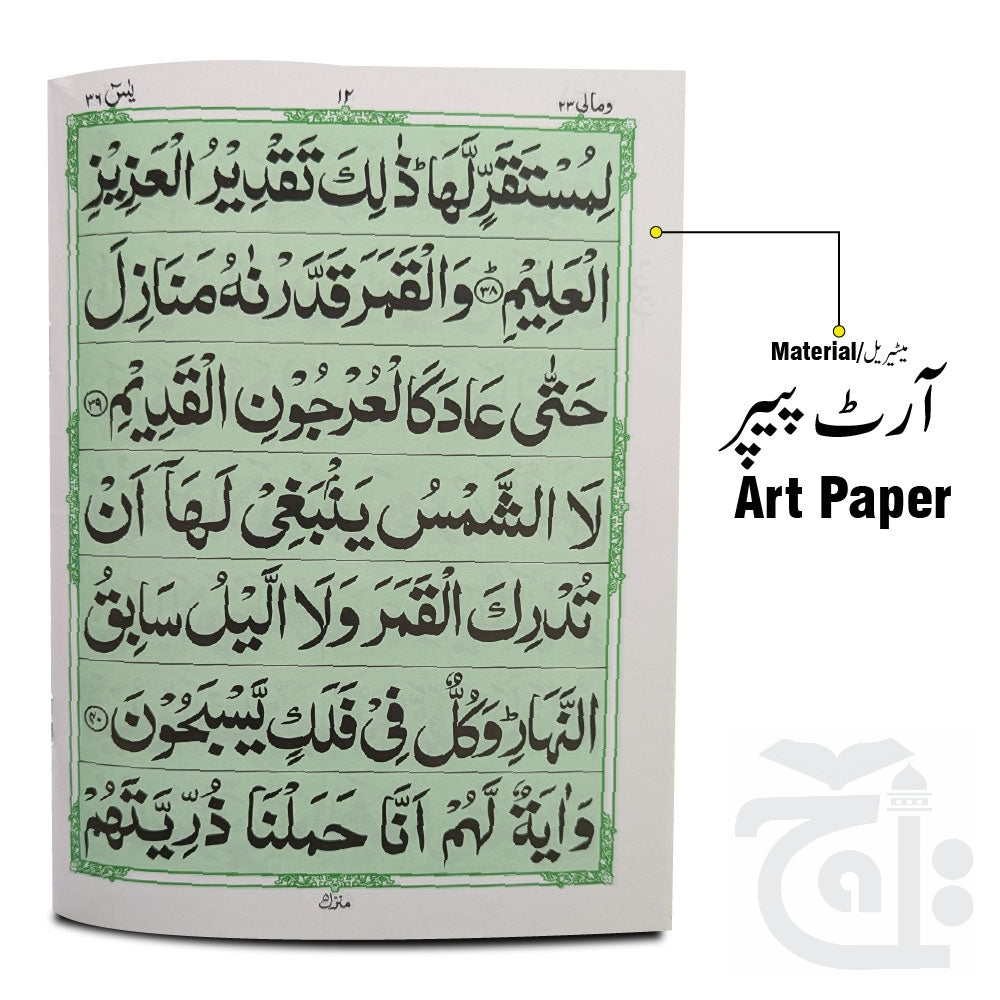 وما لی ۲۳ ۱۲ یٰسٓ ۳۶
لِمُسْتَقَرٍّ لَّهَا ؕ ذٰلِكَ تَقْدِيْرُ الْعَزِيْزِ
الْعَلِيْمِ ؕ ﴿۳۸﴾ وَالْقَمَرَ قَدَّرْنٰهُ مَنَازِلَ
حَتّٰى عَادَ كَالْعُرْجُوْنِ الْقَدِيْمِ ﴿۳۹﴾
لَا الشَّمْسُ يَنْۢبَغِىْ لَهَاۤ اَنْ
تُدْرِكَ الْقَمَرَ وَلَا الَّيْلُ سَابِقُ
النَّهَارِ ؕ وَكُلٌّ فِىْ فَلَكٍ يَّسْبَحُوْنَ ﴿۴۰﴾
وَاٰيَةٌ لَّهُمْ اَنَّا حَمَلْنَا ذُرِّيَّتَهُمْ
منزل ۵
Material/میٹیریل
آرٹ پیپر
Art Paper